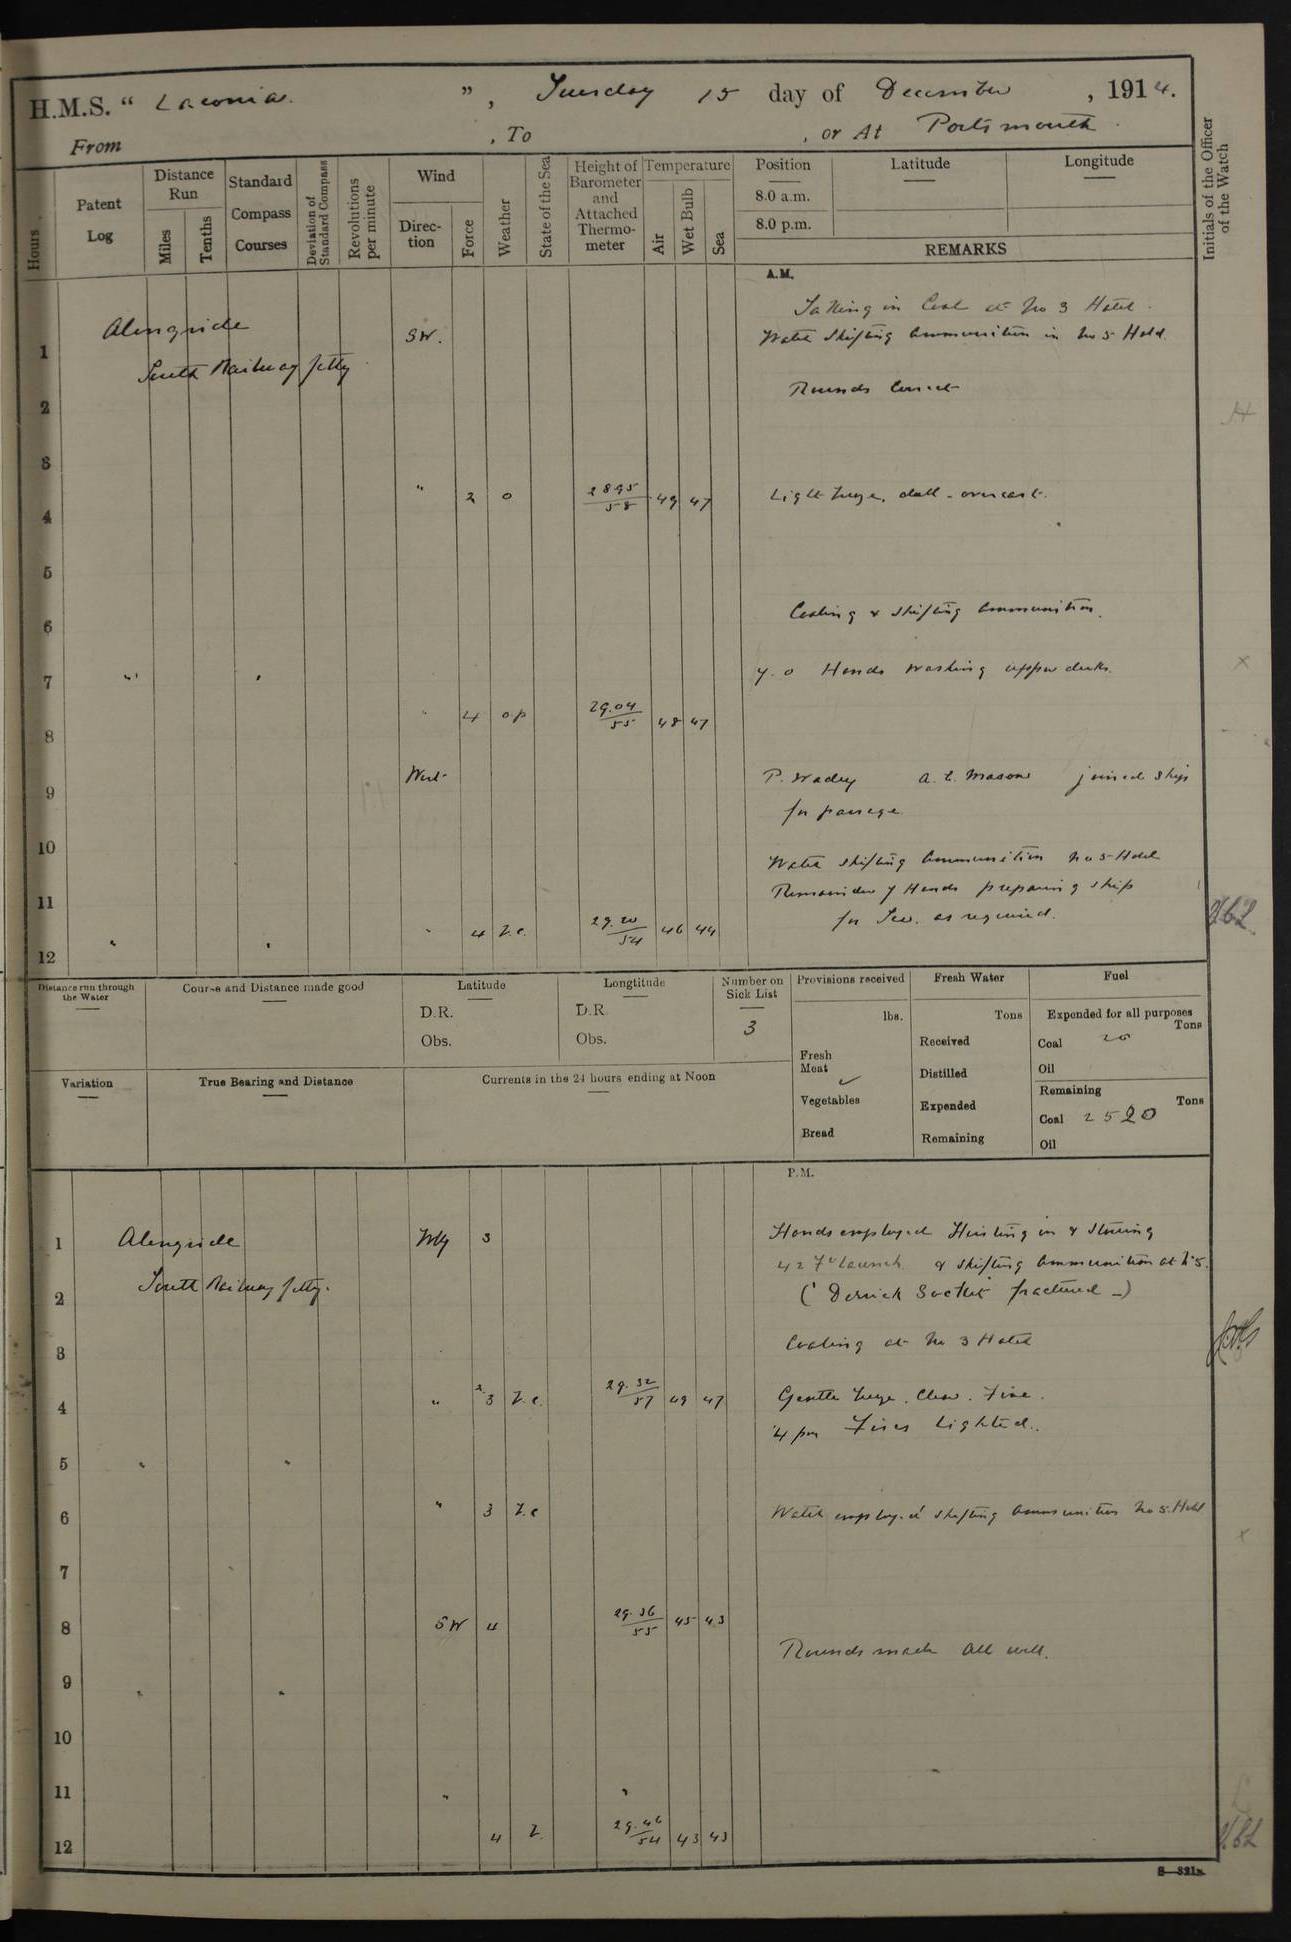 H.M.S. " Laconia. ", Tuesday 15 day of December, 1914.
From , To , or At Portsmouth.
Hours
Patent Log
Distance Run
Miles
Tenths
Standard Compass Courses
Deviation of Standard Compass
Revolutions per minute
Wind
Direction
Force
Weather
State of the Sea
Height of Barometer and Attached Thermometer
Temperature
Air
Wet Bulb
Sea
Position
8.0 a.m.
8.0 p.m.
Latitude
Longitude
REMARKS
Initials of the Officer of the Watch
A.M.
Taking in Coal at No 3 Hatch.
1 Alongside SW. Watch shifting Ammunition in No 5 Hold.
South Railway Jetty
2 Rounds Correct
3
4 " 2 o 28.95/58 49 47 Light breeze, dull - overcast.
5
6 Coaling & shifting Ammunition.
7 " " 7.0 Hands washing upper decks.
8 " 4 op 29.04/55 48 47
9 West P. Wadey A. E. Mason joined ship
for passage
10 Watch shifting Ammunition No 5 Hold
11 Remainder of Hands preparing ship
for Sea. as required.
12 " " " 4 b.c. 29.20/54 46 44
Distance run through the Water
Course and Distance made good
Latitude
D.R.
Obs.
Longtitude
D.R.
Obs.
Number on Sick List
3
Provisions received
lbs.
Fresh Meat
Vegetables
Bread
Fresh Water
Tons
Received
Distilled
Expended
Remaining
Fuel
Expended for all purposes
Tons
Coal 20
Oil
Remaining
Tons
Coal 2520
Oil
Variation
True Bearing and Distance
Currents in the 24 hours ending at Noon
P.M.
1 Alongside Wly 3 Hands employed Hoisting in & Stowing
42 Ft Launch & shifting Ammunition at No 5.
2 South Railway Jetty. (Derrick Socket fractured -)
3 Coaling at No 3 Hatch
4 " 2.3 b.c. 29.32/57 49 47 Gentle breeze. Clear. Fine.
4 pm Fires Lighted.
5 " "
6 " 3 b.c Watch employed shifting Ammunition No 5. Hold
7
8 SW 4 29.36/55 45 43
Rounds made All well.
9 " "
10
11 " "
12 4 b. 29.46/54 43 43
S—321A.